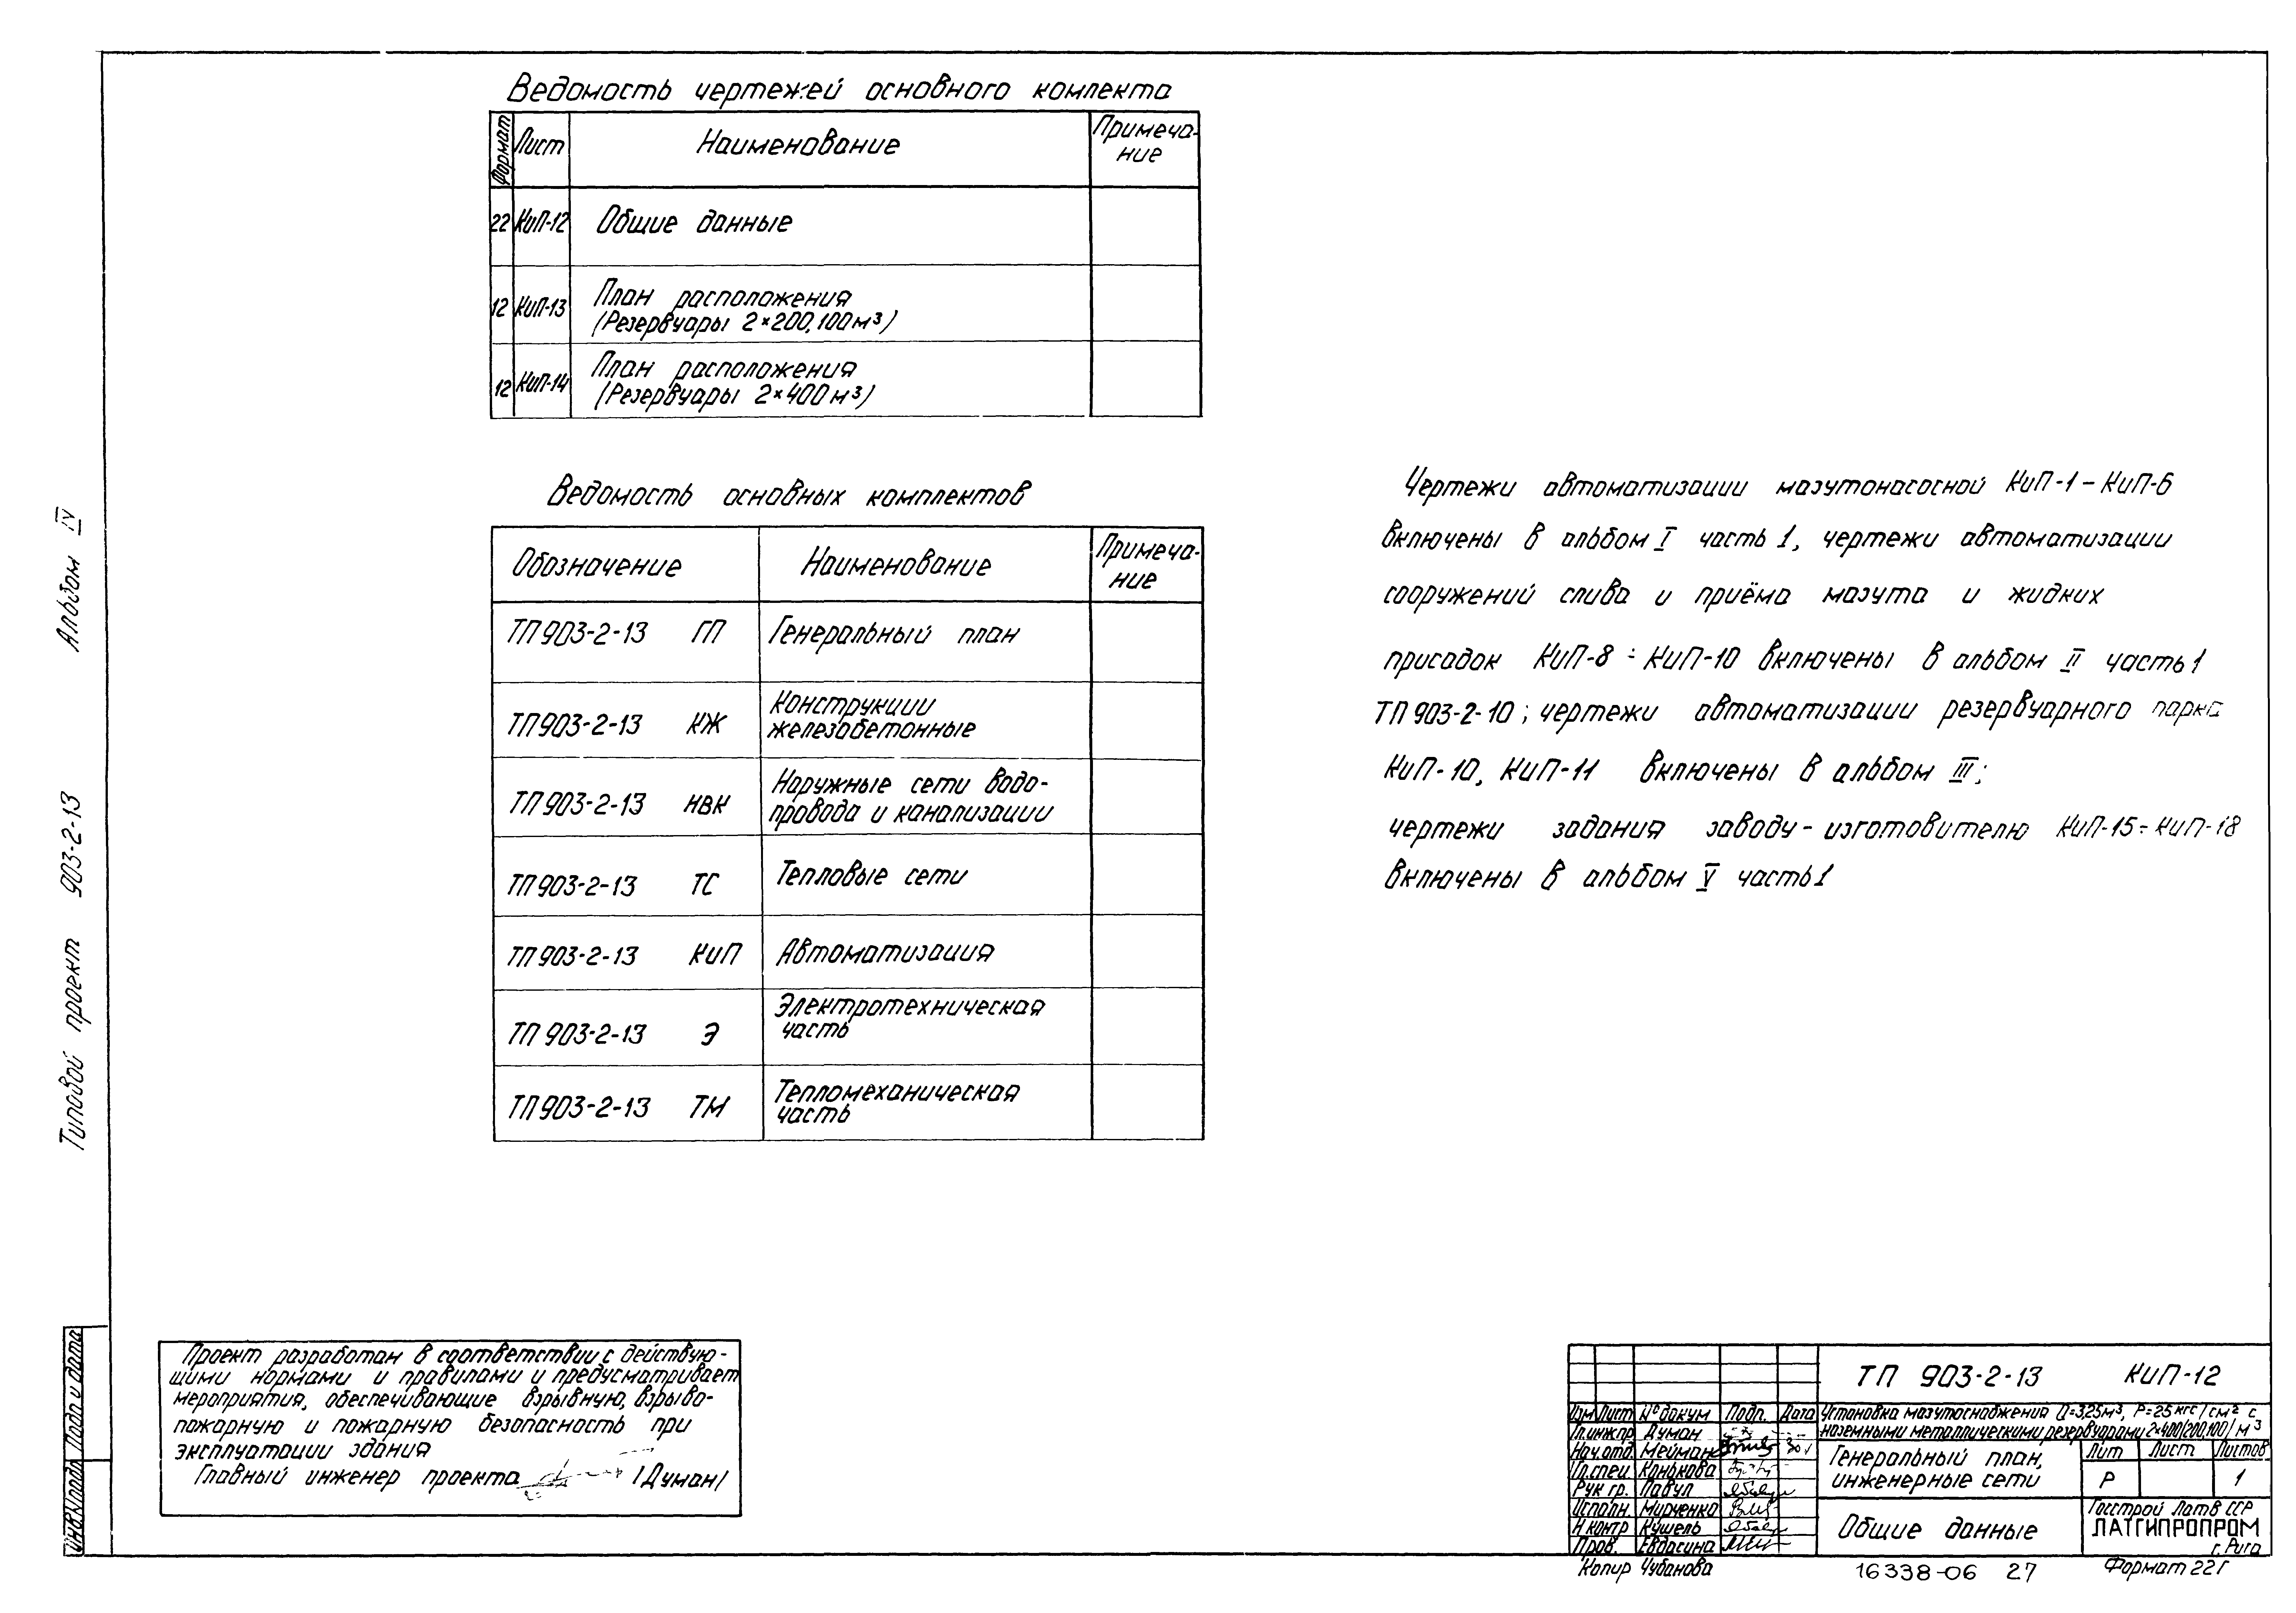 Ведомость чертежей основного комлекта
Формат Лист Наименование Примеча-
ние
22 КиП-12 Общие данные
12 КиП-13 План расположения
(Резервуары 2×200,100м³)
12 КиП-14 План расположения
(Резервуары 2×400м³)
Ведомость основных комплектов
Обозначение Наименование Примеча-
ние
ТП 903-2-13 ГП Генеральный план
ТП 903-2-13 КЖ Конструкции
железобетонные
ТП 903-2-13 НВК Наружные сети водо-
провода и канализации
ТП 903-2-13 ТС Тепловые сети
ТП 903-2-13 КиП Автоматизация
ТП 903-2-13 Э Электротехническая
часть
ТП 903-2-13 ТМ Тепломеханическая
часть
Чертежи автоматизации мазутонасосной КиП-1 – КиП-6
включены в альбом I часть 1, чертежи автоматизации
сооружений слива и приёма мазута и жидких
присадок КиП-8 ÷ КиП-10 включены в альбом II часть 1
ТП 903-2-10; чертежи автоматизации резервуарного парка
КиП-10, КиП-11 включены в альбом III;
чертежи задания заводу-изготовителю КиП-15 ÷ КиП-18
включены в альбом V часть 1
Альбом IV
Типовой проект 903-2-13
Подп и дата
Инв.№подл
Проект разработан в соответствии с действую-
щими нормами и правилами и предусматривает
мероприятия, обеспечивающие взрывную, взрыво-
пожарную и пожарную безопасность при
эксплуатации здания
Главный инженер проекта /Думан/
ТП 903-2-13 КиП-12
Изм Лист № докум Подп. Дата
Установка мазутоснабжения Q=3,25м³, P=25 кгс/см² с
наземными металлическими резервуарами 2×400(200,100) м³
Гл.инж.пр Думан
Нач.отд Мейман
Гл.спец Конькова
Рук гр. Павул
Исполн. Мирченко
Н контр Кушель
Пров. Евдасина
Генеральный план,
инженерные сети
Лит Лист Листов
Р 1
Общие данные
Госстрой Латв ССР
ЛАТГИПРОПРОМ
г. Рига
Копир Чубанова
16338-06 27
Формат 22г